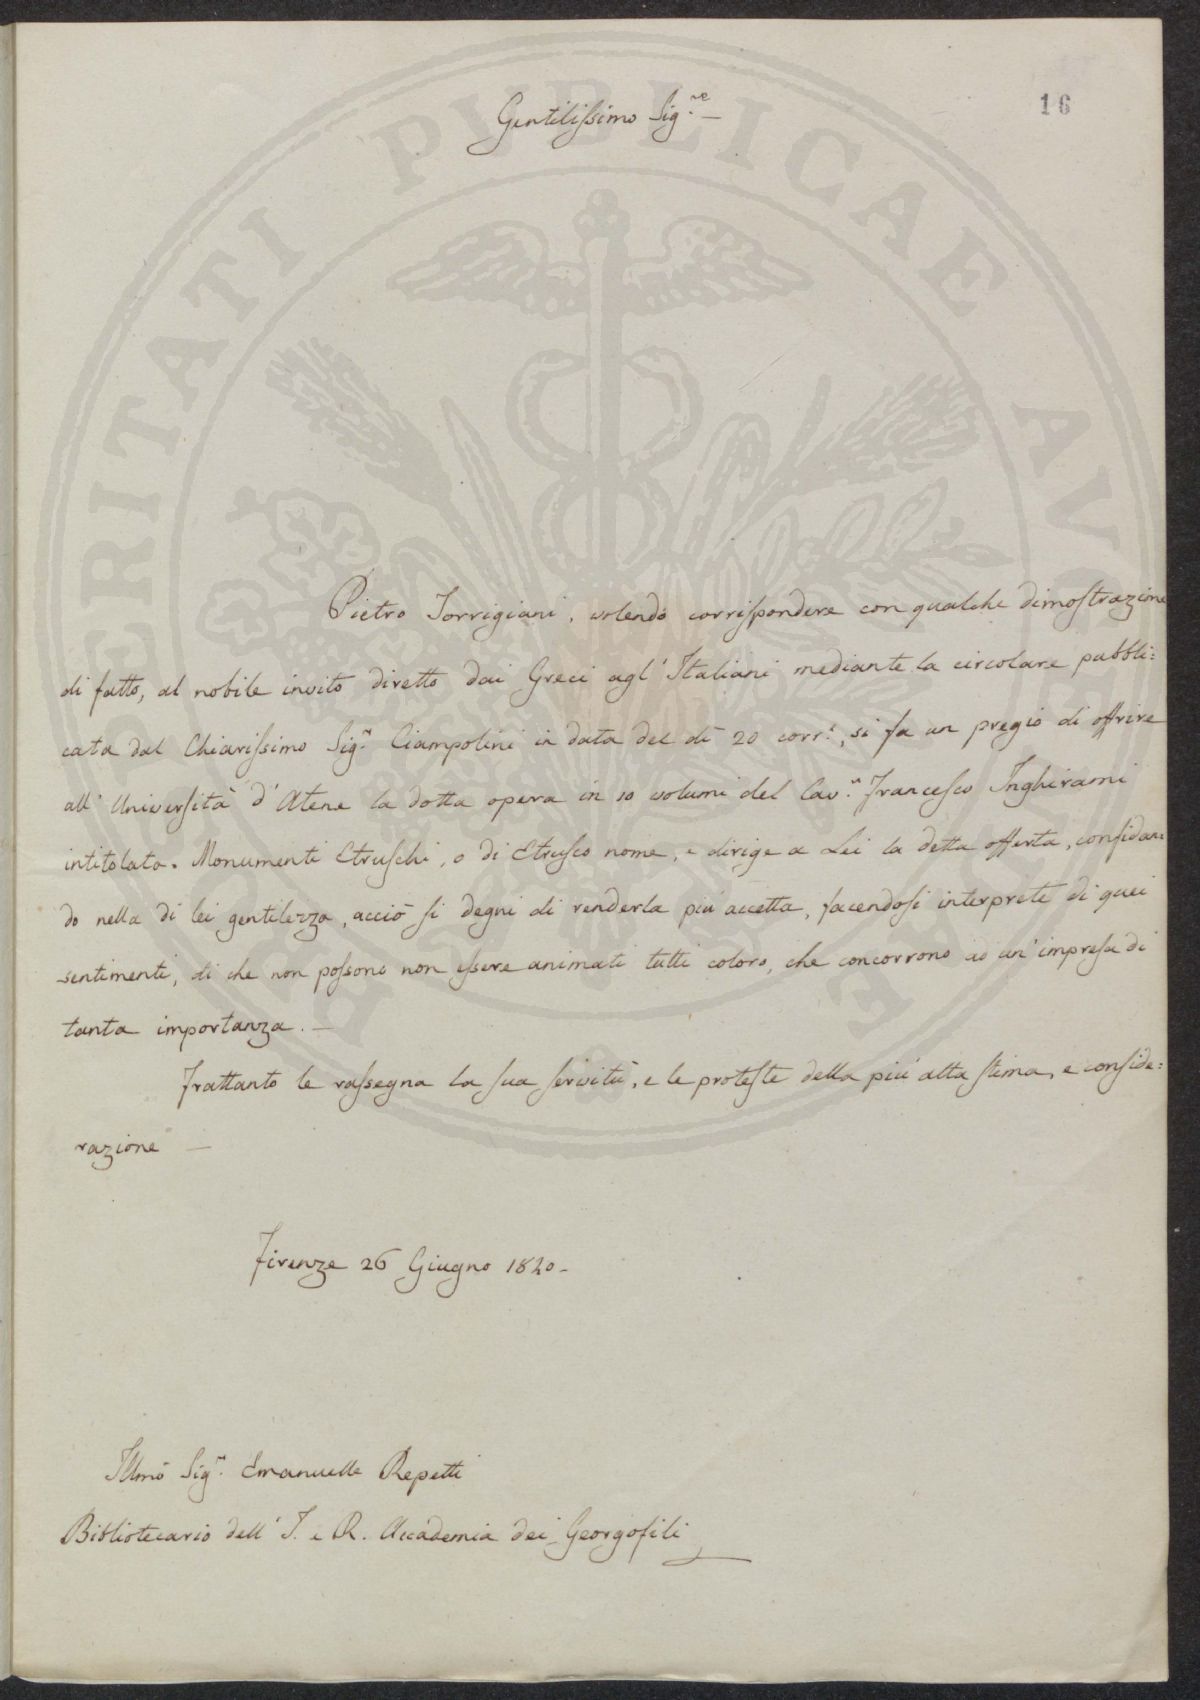 16
Gentilissimo Sig.re
Pietro Torrigiani, volendo corrispondere con qualche dimostrazione
di fatto, al nobile invito diretto dai Greci agl' Italiani mediante la circolare pubbli=
cata dal Chiarissimo Sig.r Ciampolini in data del dì 20 corr.e, si fa un pregio di offrire
all' Università d' Atene la dotta opera in 10 volumi del Cav.r Francesco Inghirami
intitolata. Monumenti Etruschi, o di Etrusco nome, e dirige a Lei la detta offerta, confidan=
do nella di lei gentilezza, acciò si degni di renderla più accetta, facendosi interprete di quei
sentimenti, di che non possono non essere animati tutti coloro, che concorrono ad un' impresa di
tanta importanza. —
Frattanto le rassegna la sua servitù, e le proteste della più alta stima, e conside=
razione —
Firenze 26 Giugno 1840 -
Illmo Sig.r Emanuelle Repetti
Bibliotecario dell' I. e R. Accademia dei Georgofili